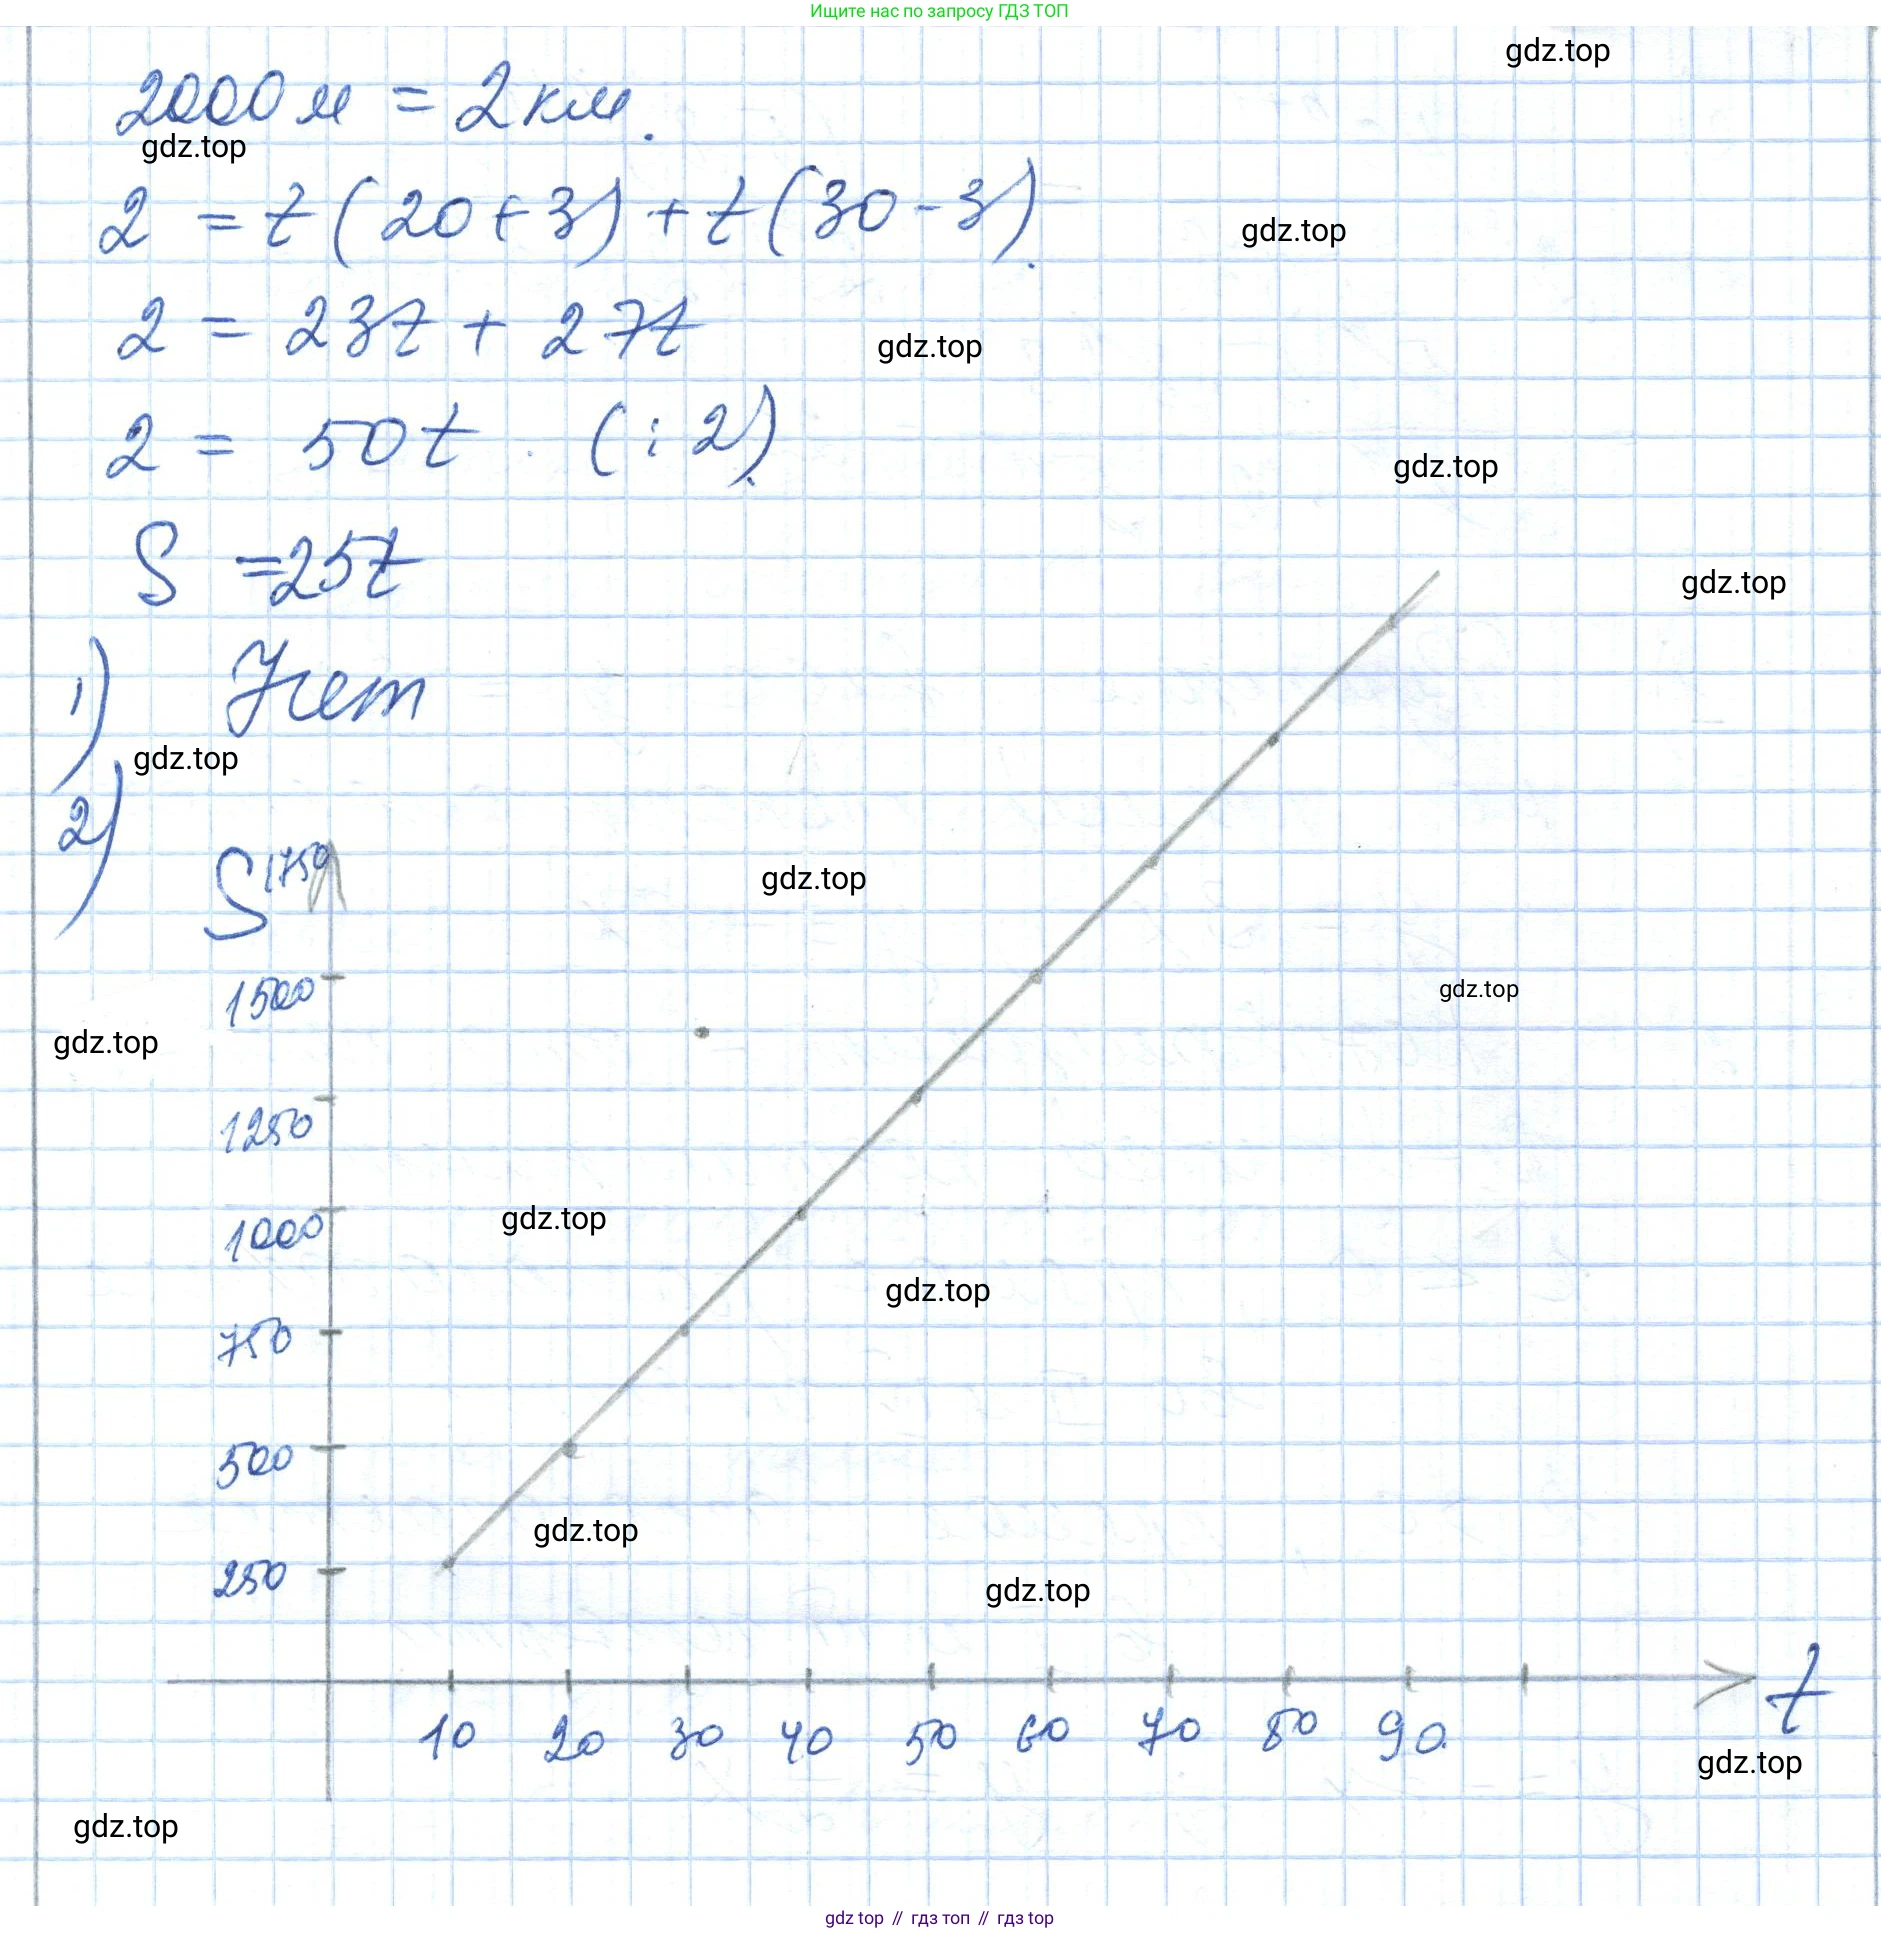 Ищите нас по запросу ГДЗ ТОП
gdz.top
2000 м = 2 км.
gdz.top
2 = t(20+3) + t(30-3).
gdz.top
2 = 23t + 27t
gdz.top
2 = 50t (:2)
gdz.top
S = 25t
gdz.top
1) Нет
gdz.top
2)
S 1750
gdz.top
1500
gdz.top
gdz.top
1250
1000
gdz.top
gdz.top
750
500
gdz.top
250
gdz.top
t
10 20 30 40 50 60 70 80 90
gdz.top
gdz.top
gdz top // гдз топ // гдз top